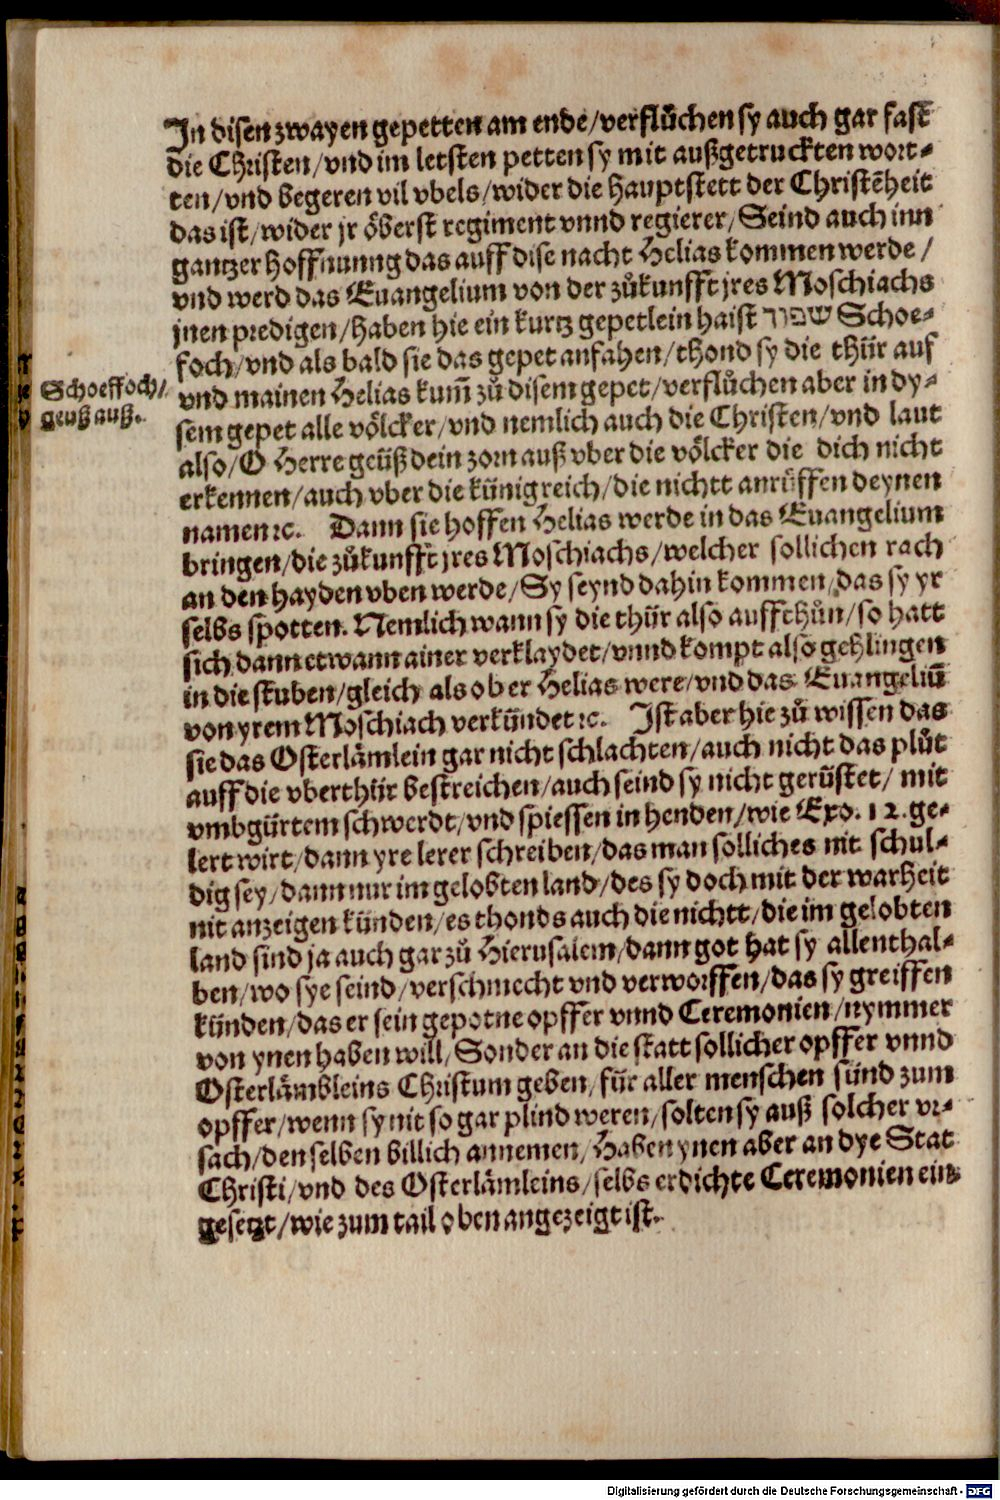 In disen zwayen gepetten am ende/verflůchen sy auch gar fast
die Christen/vnd im letsten petten sy mit außgetruckten wort-
ten/vnd begeren vil vbels/wider die hauptstett der Christēheit
das ist/wider jr öberst regiment vnnd regierer/Seind auch inn
gantzer hoffnunng das auff dise nacht Helias kommen werde/
vnd werd das Euangelium von der zůkunfft jres Moschiachs
jnen predigen/haben hie ein kurtz gepetlein haist שפך Schoe-
foch/vnd als bald sie das gepet anfahen/thond sy die thür auf
Schoeffoch/
geuß auß.
vnd mainen Helias kum̄ zů disem gepet/verflůchen aber in dy-
sem gepet alle völcker/vnd nemlich auch die Christen/vnd laut
also/O Herre geüß dein zorn auß vber die völcker die dich nicht
erkennen/auch vber die künigreich/die nichtt anrůffen deynen
namen ꝛc. Dann sie hoffen Helias werde in das Euangelium
bringen/die zůkunfft jres Moschiachs/welcher sollichen rach
an den hayden vben werde/Sy seynd dahin kommen/das sy yr
selbs spotten. Nemlich wann sy die thür also auffthůn/so hatt
sich dann etwann ainer verklaydet/vnnd kompt also gehlingen
in die stuben/gleich als ob er Helias were/vnd das Euangeliū
von yrem Moschiach verkündet ꝛc. Ist aber hie zů wissen das
sie das Osterlämlein gar nicht schlachten/auch nicht das plůt
auff die vberthür bestreichen/auch seind sy nicht gerüstet/ mit
vmbgürtem schwerdt/vnd spiessen in henden/wie Exo. 12. ge-
lert wirt/dann yre lerer schreiben/das man solliches nit schul-
dig sey/dann nur im gelobten land/des sy doch mit der warheit
nit anzeigen künden/es thonds auch die nichtt/die im gelobten
land sind ja auch gar zů Hierusalem/dann got hat sy allenthal-
ben/wo sye seind/verschmecht vnd verworffen/das sy greiffen
künden/das er sein gepotne opffer vnnd Ceremonien/nymmer
von ynen haben will/Sonder an die statt sollicher opffer vnnd
Osterlämbleins Christum geben/für aller menschen sünd zum
opffer/wenn sy nit so gar plind weren/solten sy auß solcher vr-
sach/den selben billich annemen/Haben ynen aber an dye Stat
Christi/vnd des Osterlämleins/selbs erdichte Ceremonien ein-
gesetzt/wie zum tail oben angezeigt ist.
Digitalisierung gefördert durch die Deutsche Forschungsgemeinschaft - DFG